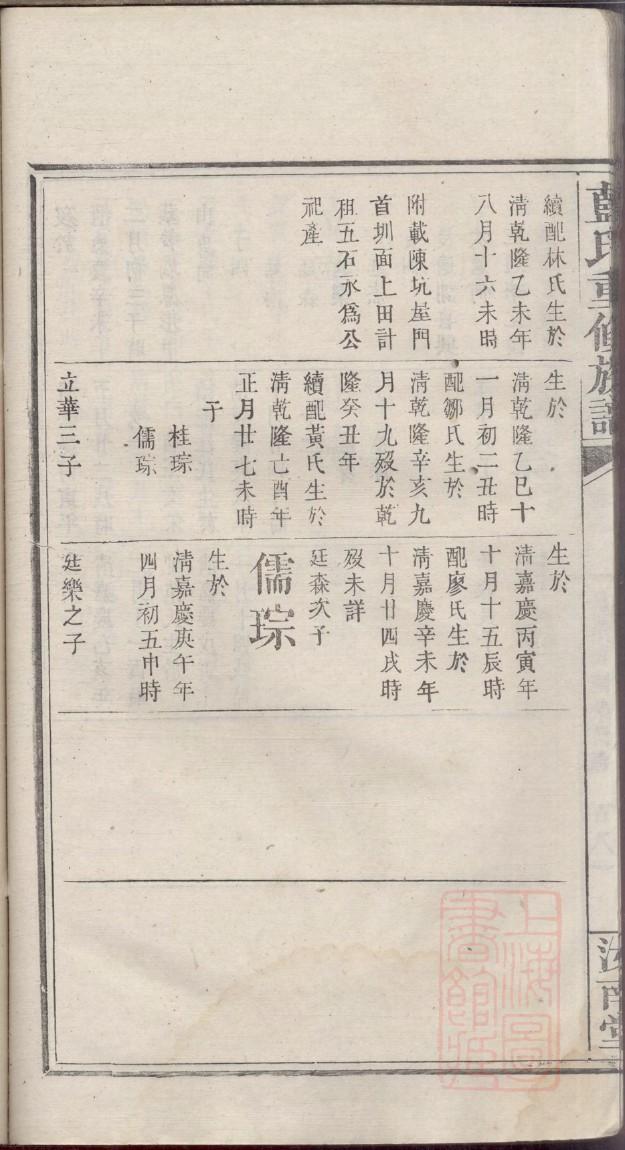 藍氏重修族譜
續配林氏生於
清乾隆乙未年
八月十六未時
附載陳坑屋門
首圳面上田計
租五石永爲公
祀產
生於
清乾隆乙巳十
一月初二丑時
配鄒氏生於
清乾隆辛亥九
月十九歿於乾
隆癸丑年
續配黃氏生於
清乾隆己酉年
正月廿七未時
子
桂琮
儒琮
立華三子
生於
清嘉慶丙寅年
十月十五辰時
配廖氏生於
清嘉慶辛未年
十月廿四戌時
歿未詳
廷森次子
儒琮
生於
清嘉慶庚午年
四月初五申時
廷樂之子
汝南堂
上海圖
書館藏